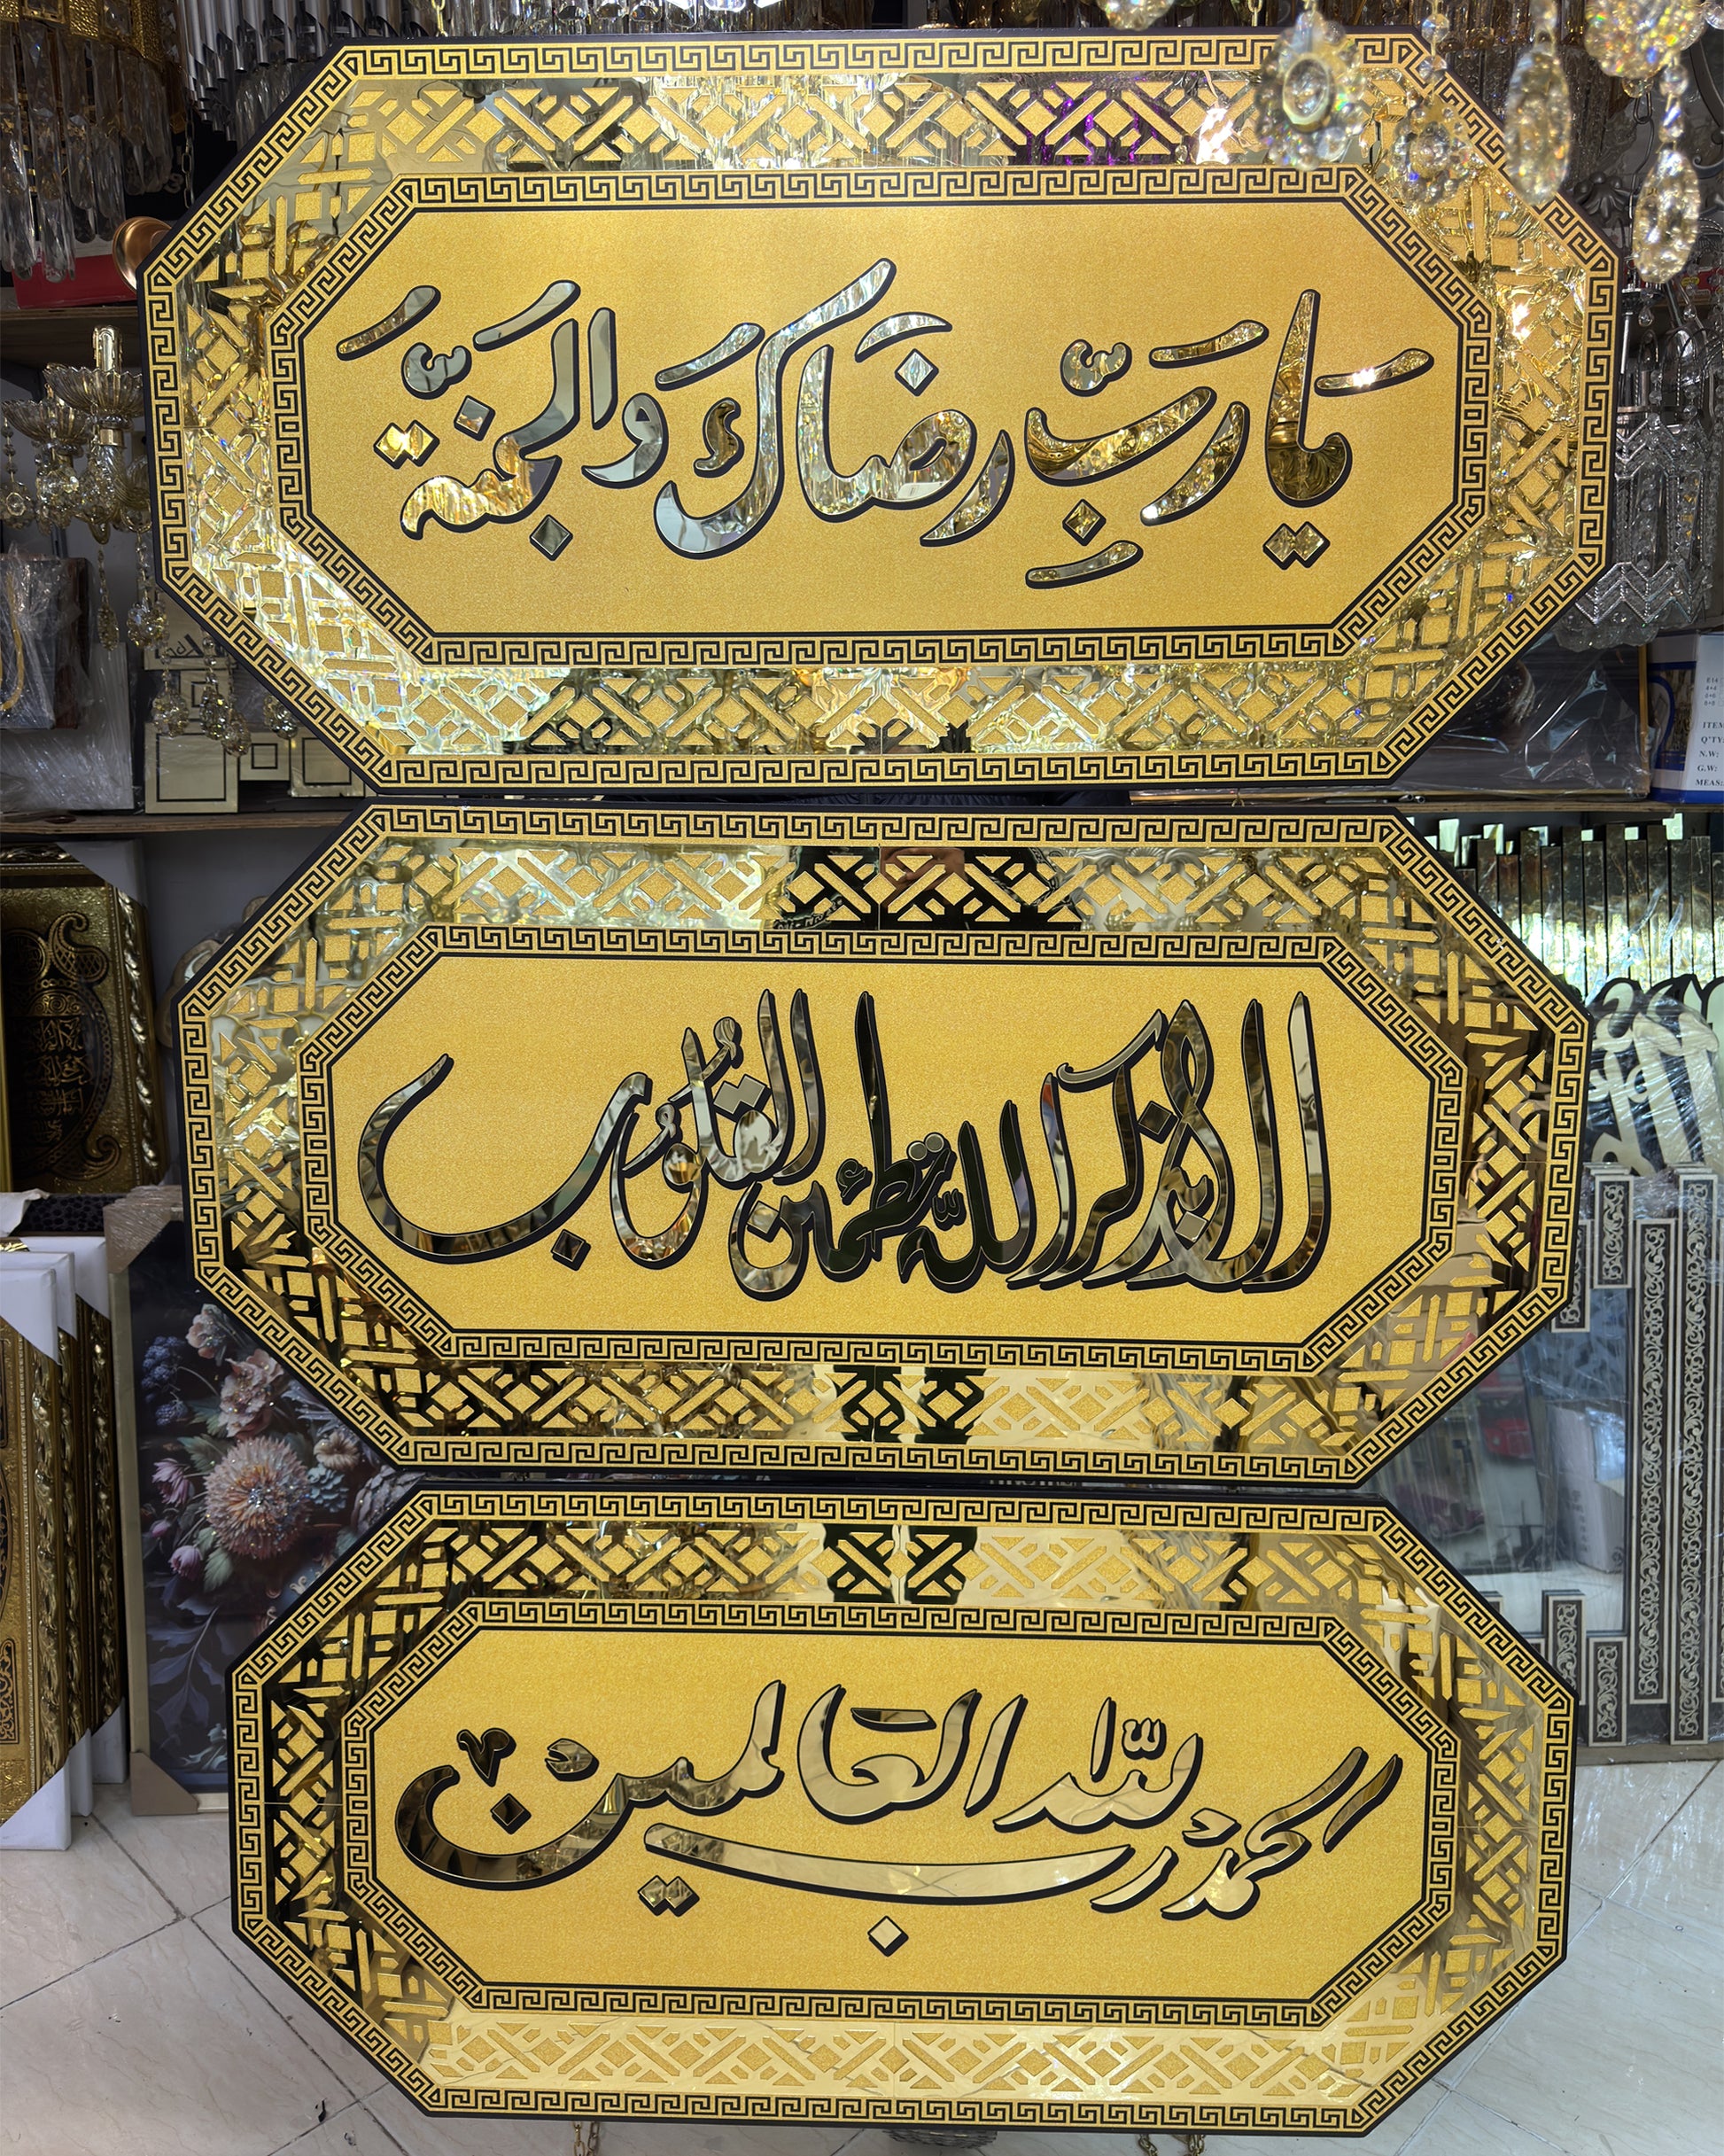 يَا رَبِّ رضَاكَ وَالْجَنَّةَ
الا بذكر الله تطمئن القُلُوب
الحمد لله رب العالمين
ITEM
Q'TY
N.W:
G.W:
MEAS